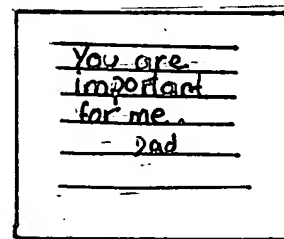 You are
important
for me.
- Dad